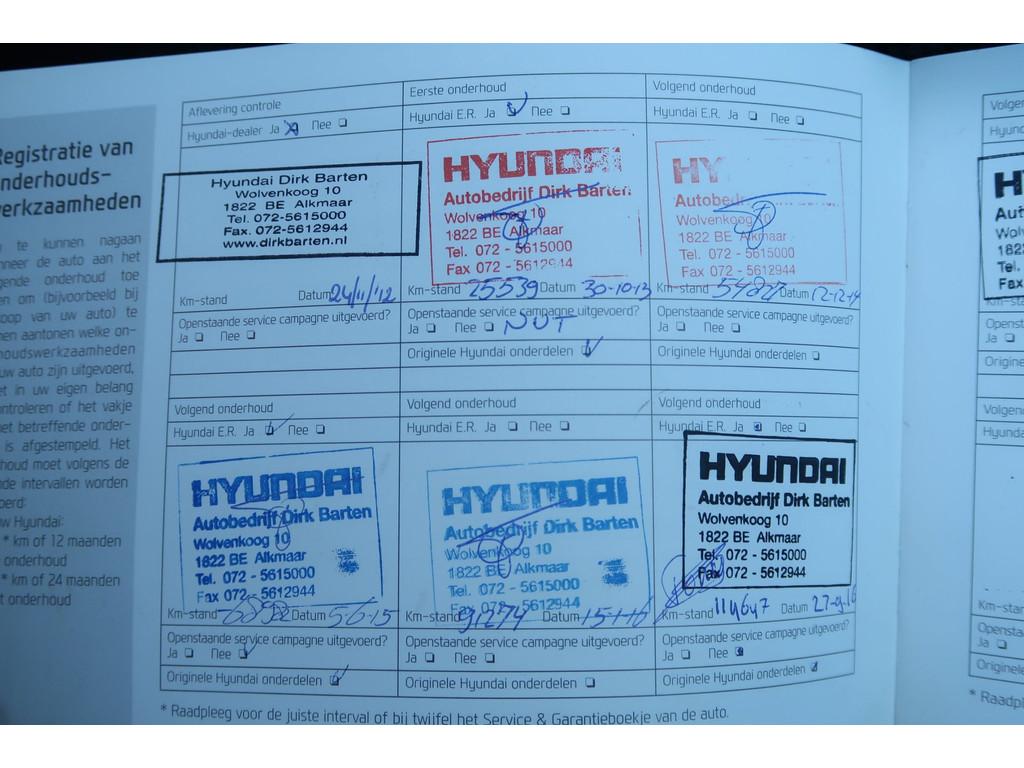 Registratie van
onderhouds-
werkzaamheden
te kunnen nagaan
neer de auto aan het
gende onderhoud toe
en om (bijvoorbeeld bij
oop van uw auto) te
nen aantonen welke on-
houdswerkzaamheden
uw auto zijn uitgevoerd,
et in uw eigen belang
ntroleren of het vakje
het betreffende onder-
is afgestempeld. Het
houd moet volgens de
nde intervallen worden
oerd:
w Hyundai:
* km of 12 maanden
onderhoud
* km of 24 maanden
t onderhoud
Aflevering controle
Hyundai-dealer Ja Nee
Hyundai Dirk Barten
Wolvenkoog 10
1822 BE Alkmaar
Tel. 072-5615000
Fax. 072-5612944
www.dirkbarten.nl
Km-stand Datum 24/11/'12
Openstaande service campagne uitgevoerd?
Ja Nee
Eerste onderhoud
Hyundai E.R. Ja Nee
HYUNDAI
Autobedrijf Dirk Barten
Wolvenkoog 10
1822 BE Alkmaar
Tel. 072 - 5615000
Fax 072 - 5612944
Km-stand 25539 Datum 30-10-13
Openstaande service campagne uitgevoerd?
Ja Nee NUT
Originele Hyundai onderdelen
Volgend onderhoud
Hyundai E.R. Ja Nee
HY
Autobed
Wolvenkoog 10
1822 BE Alkmaar
Tel. 072 - 5615000
Fax 072 - 5612944
Km-stand Datum 12-12-14
Openstaande service campagne uitgevoerd?
Ja Nee
Originele Hyundai onderdelen
Volgend onderhoud
Hyundai E.R. Ja Nee
HYUNDAI
Autobedrijf Dirk Barten
Wolvenkoog 10
1822 BE Alkmaar
Tel. 072 - 5615000
Fax 072 - 5612944
Km-stand Datum 5-6-15
Openstaande service campagne uitgevoerd?
Ja Nee
Originele Hyundai onderdelen
Volgend onderhoud
Hyundai E.R. Ja Nee
HYUNDAI
Autobedrijf Dirk Barten
Wolvenkoog 10
1822 BE Alkmaar
Tel. 072 - 5615000
Fax 072 - 5612944
Km-stand 91274 Datum 15-1-16
Openstaande service campagne uitgevoerd?
Ja Nee
Originele Hyundai onderdelen
Volgend onderhoud
Hyundai E.R. Ja Nee
HYUNDAI
Autobedrijf Dirk Barten
Wolvenkoog 10
1822 BE Alkmaar
Tel. 072 - 5615000
Fax 072 - 5612944
Km-stand 114647 Datum 27-9-16
Openstaande service campagne uitgevoerd?
Ja Nee
Originele Hyundai onderdelen
* Raadpleeg voor de juiste interval of bij twijfel het Service & Garantieboekje van de auto.
Volgen
Hyund
H
Aut
Wol
182
Tel.
Fax
Km-st
Openst
Ja
Origine
Volgen
Hyunda
Km-st
Opensta
Ja
Originele
* Raadpl